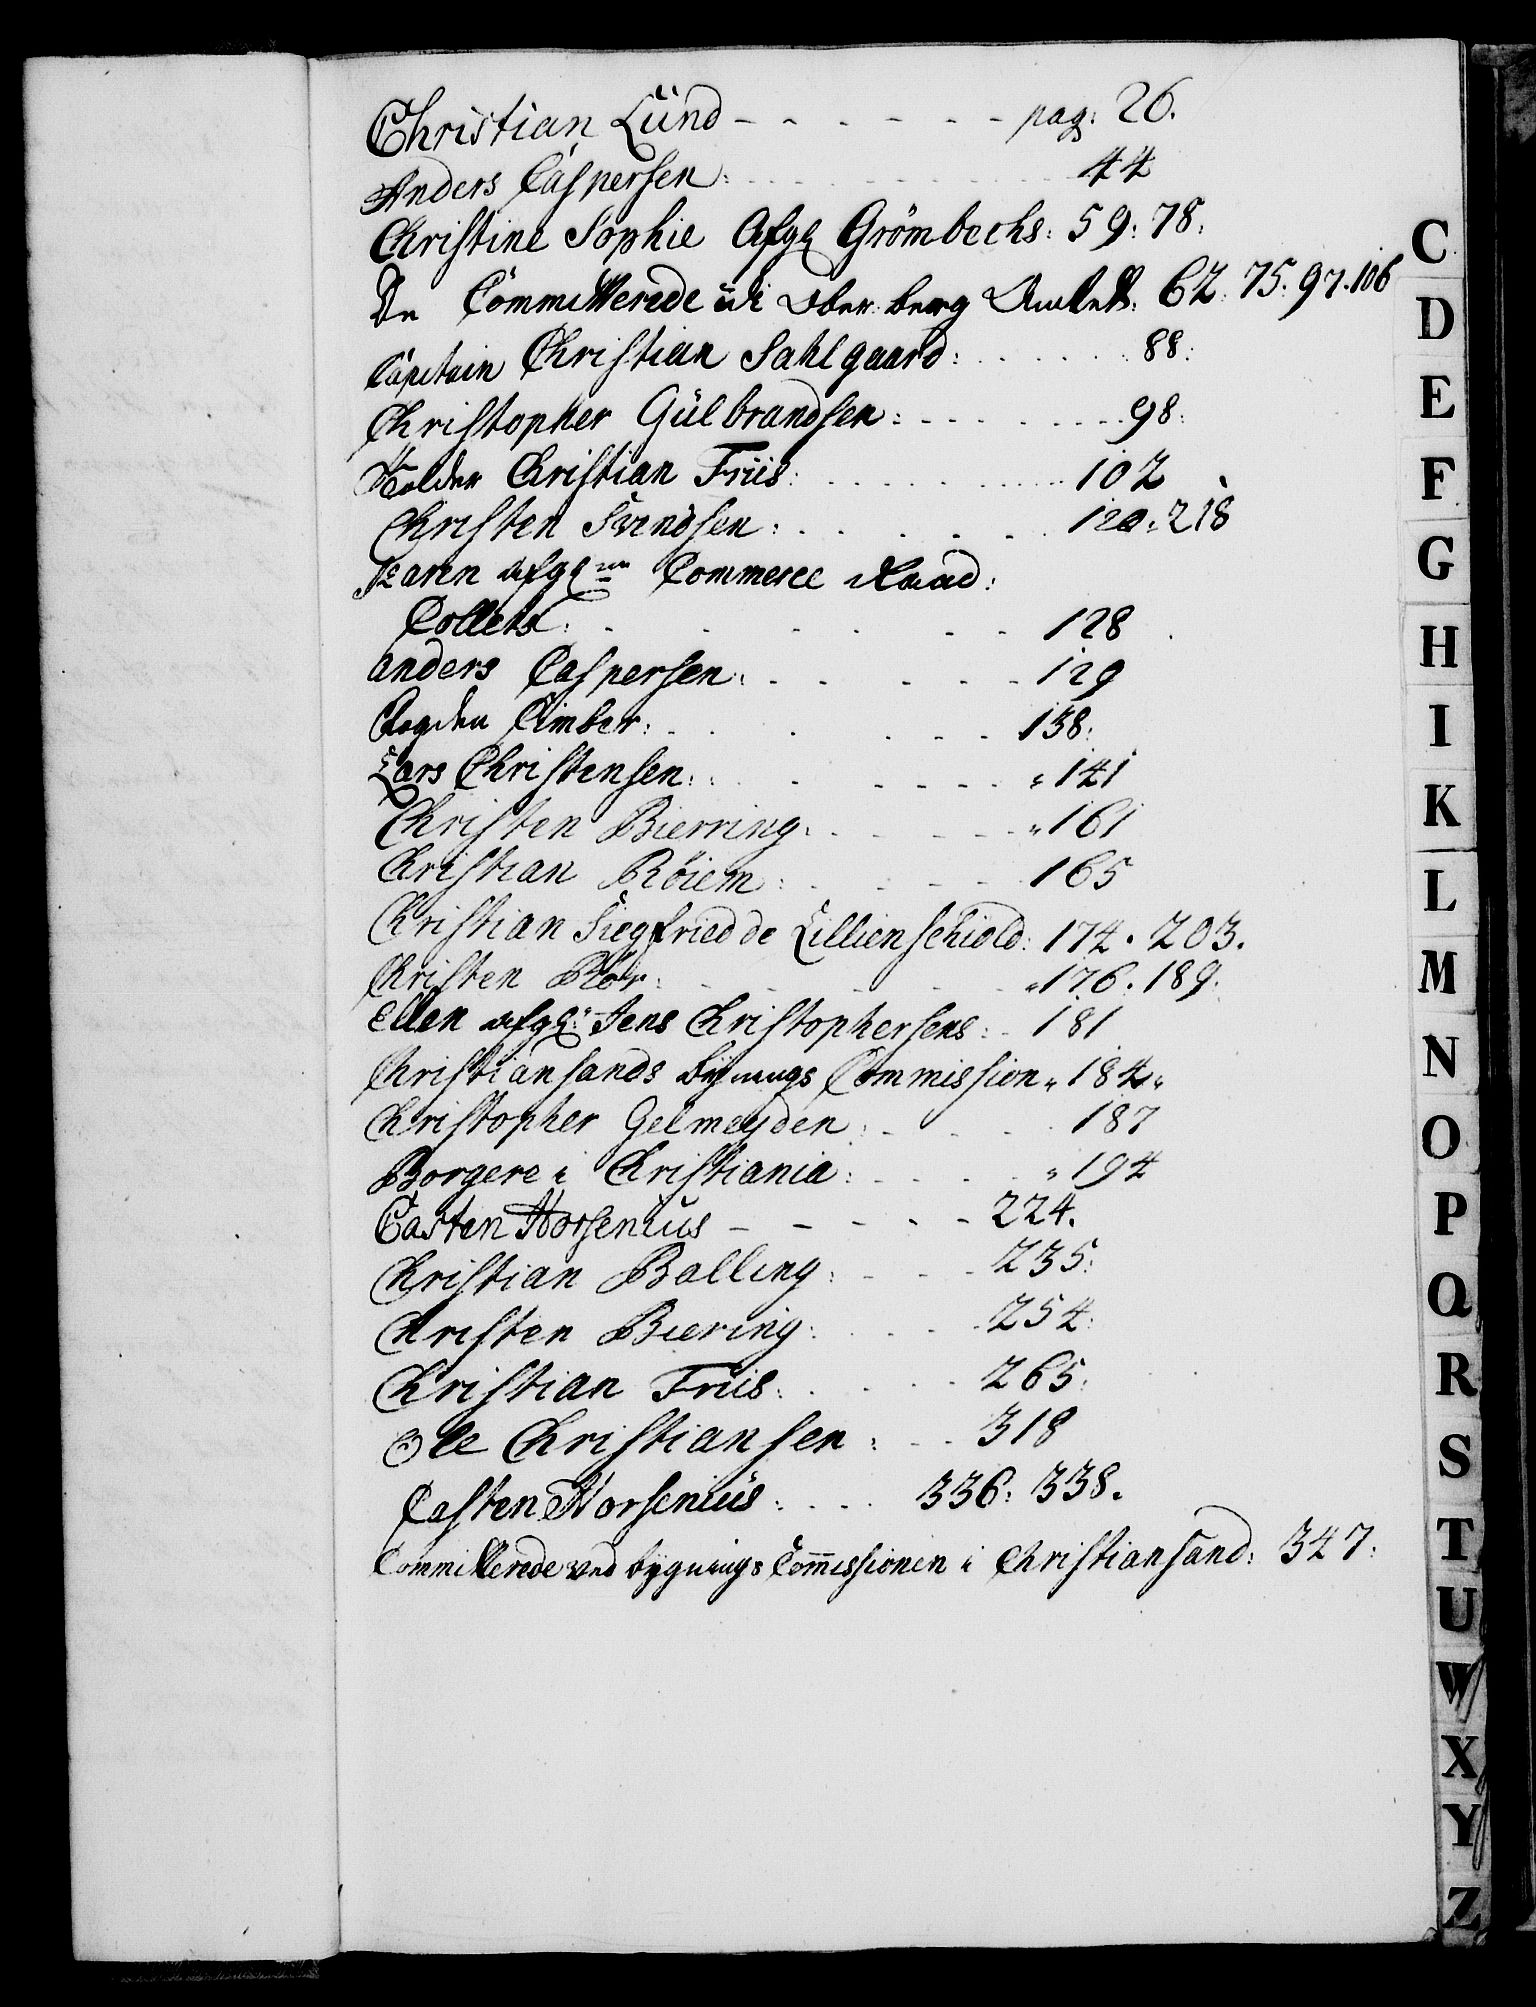 Christian Lünd - - - - - - pag: 26.
Anders Caspersen: 44
Christine Sophie Afg: Grömbechs: 59: 78:
De Committerede üdi Ober berg Amtet: 62: 75: 97. 106
Capitain Christian Sahlgaard: 88:
Christopher Gülbrandsen: 98:
Christian Friis: 102
Christen Svendsen: 120: 218
Karen afg: Commerce Raad:
Collets: 128
anders Caspersen: 129
Fogden Cimber: 138:
Lars Christensen: 141
Christen Bierring: 161
Christian Röiem: 165
Christian Siegfried de Lillienschiold: 174. 203.
Christen Blör: 176. 189:
Ellen afg: Jens Christophersens: 181
Christiansands bygnings Commission 184
Christopher Gelmeyden: 187
Borgere i Christiania: 194
Casten Worsenius - - - - - 224.
Christian Balling: 235:
Christen Biering: 254:
Christian Friis: 265:
Ole Christiansen: 318
Casten Worsenius: 336: 338.
Committerede ved bygnings Com̄issionen i Christiansand: 347:
C
D
E
F
G
H
I
K
L
M
N
O
P
Q
R
S
T
U
W
X
Y
Z